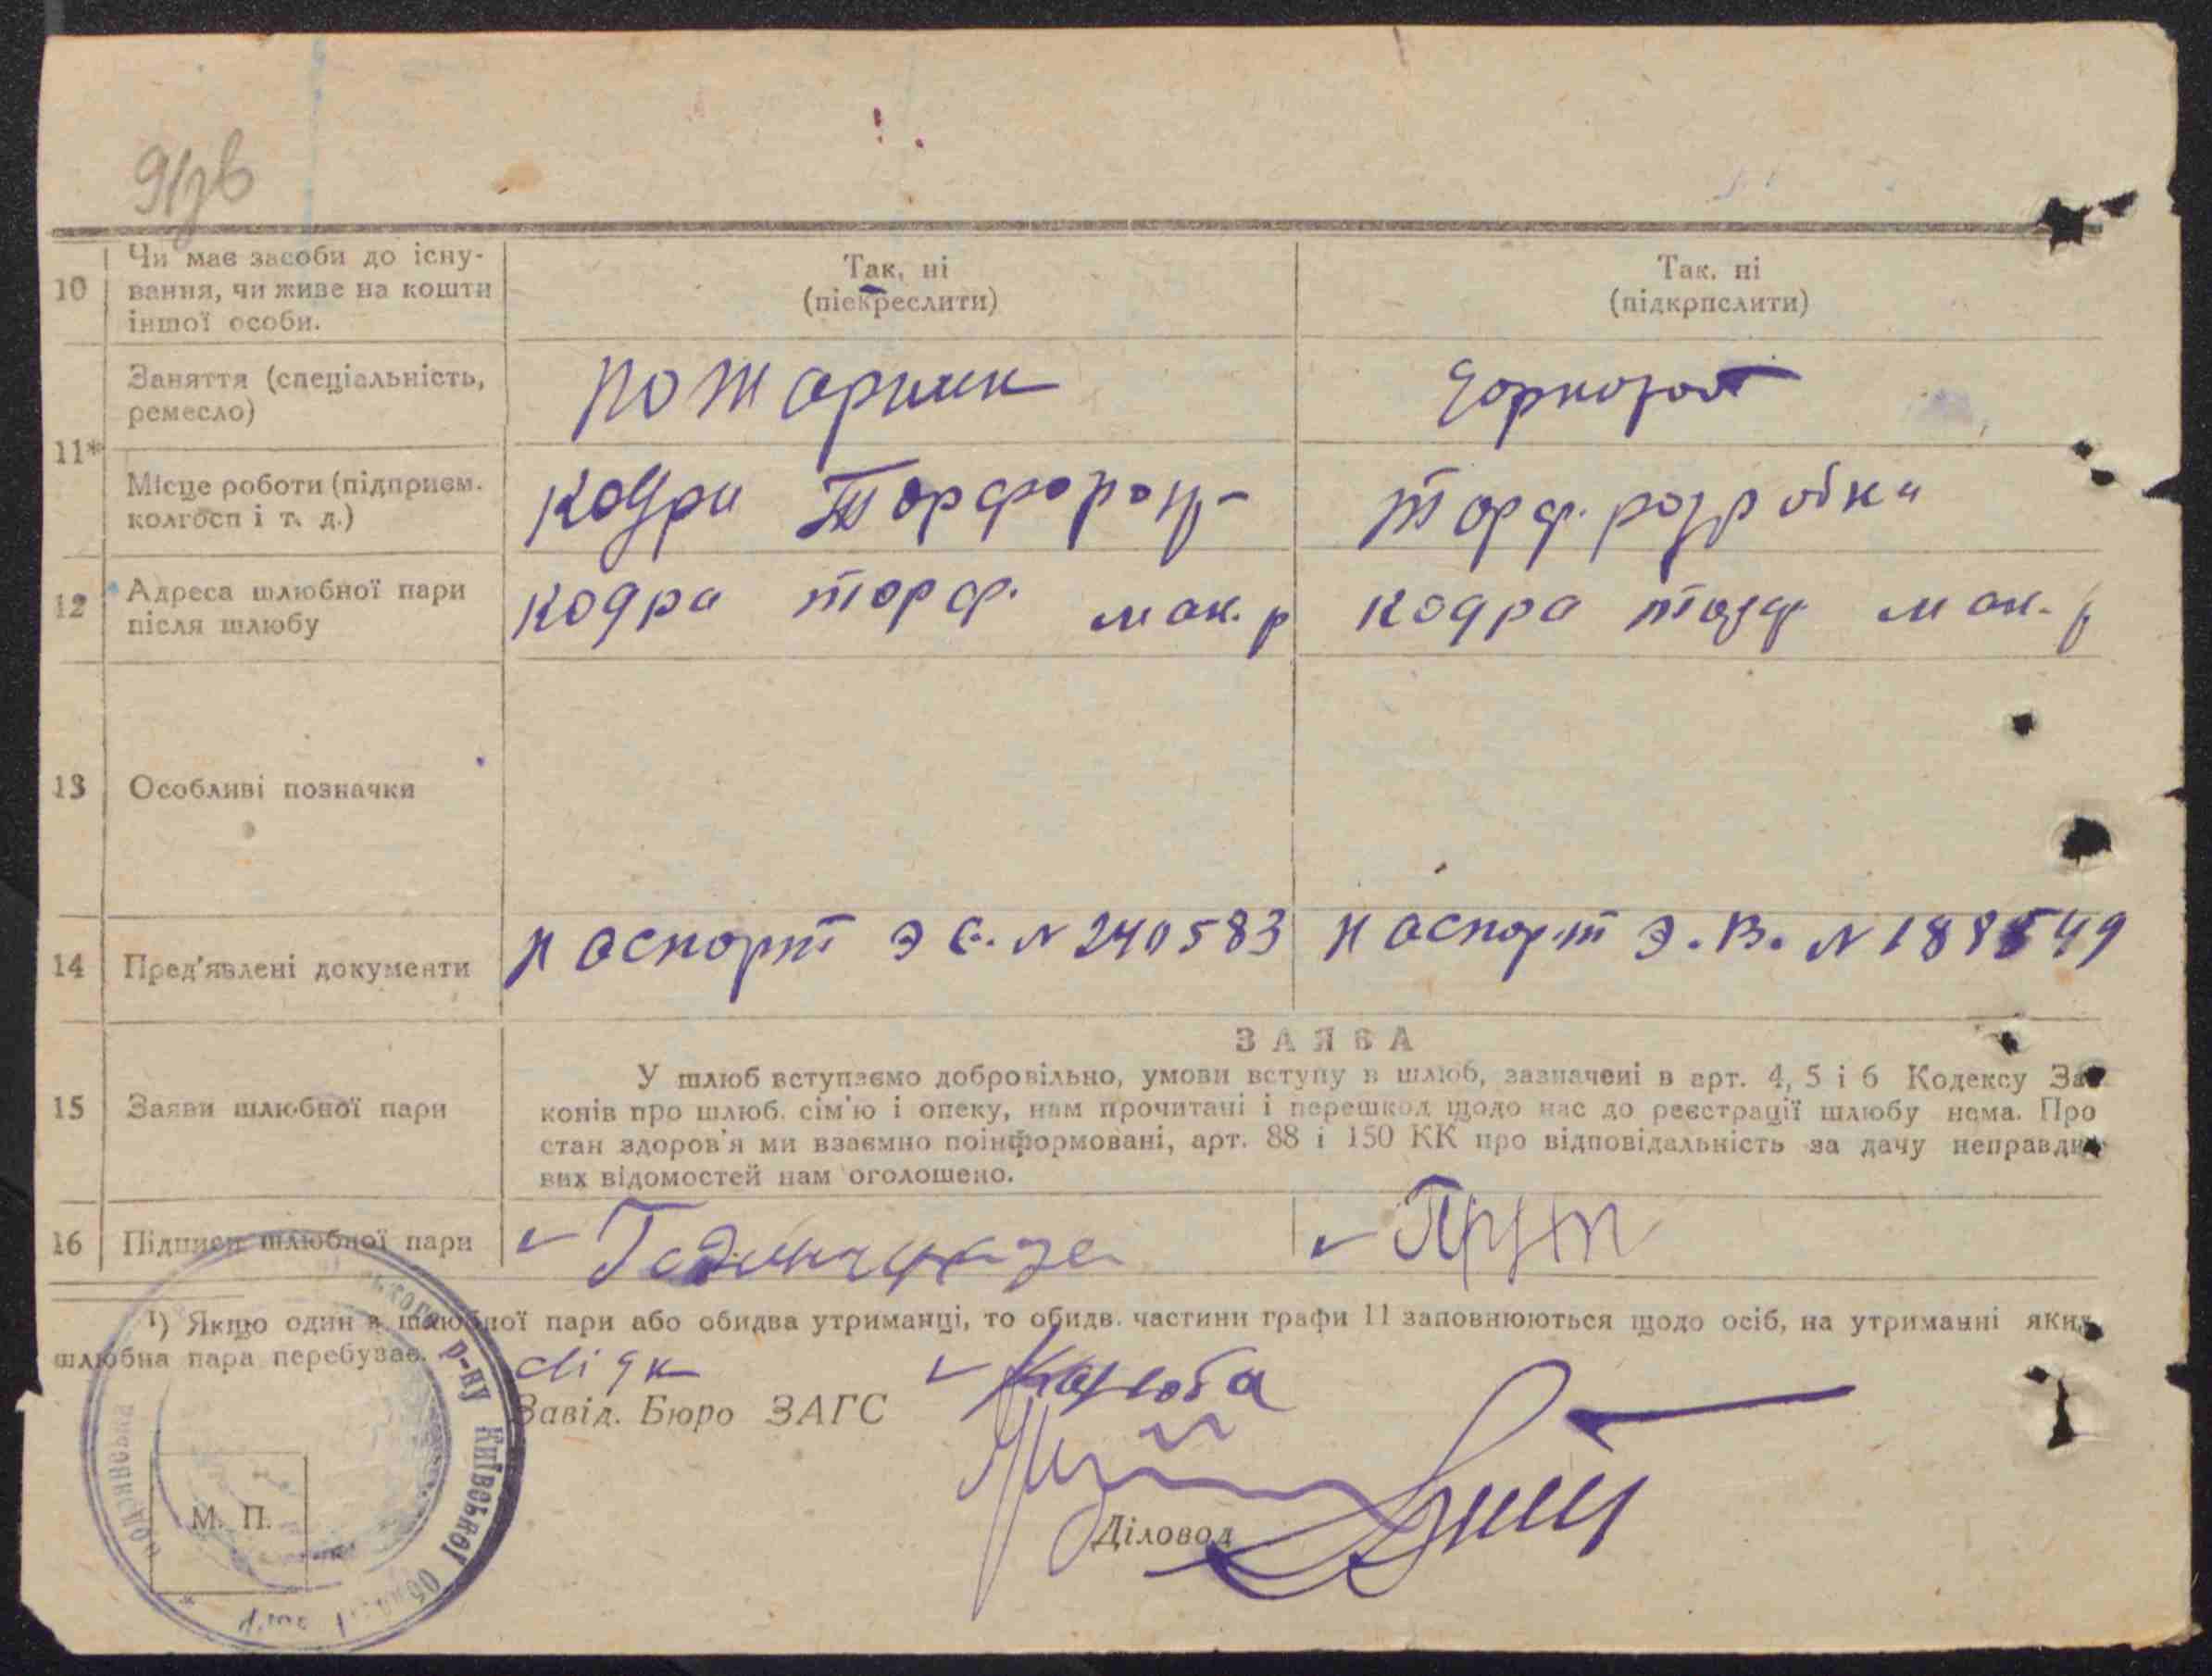 91зв
10 Чи має засоби до існу-
вання, чи живе на кошти
іншої особи.
Так, ні
(піекреслити)
Так, ні
(підкрпслити)
11*
Заняття (спеціальність,
ремесло)
пожарник
Місце роботи (підприєм.
колгосп і т. д.)
кодри Торфороз-
торф. розробки
12 Адреса шлюбної пари
після шлюбу
кодра торф. мак. р
кодра торф мак. р
13 Особливі позначки
14 Пред'явлені документи
паспорт Э С. N 240583
паспорт Э. В. N
15 Заяви шлюбної пари
ЗАЯВА
У шлюб вступаємо добровільно, умови вступу в шлюб, зазначені в арт. 4, 5 і 6 Кодексу За-
конів про шлюб, сім'ю і опеку, нам прочитані і перешкод щодо нас до реєстрації шлюбу нема. Про
стан здоров'я ми взаємно поінформовані, арт. 88 і 150 КК про відповідальність за дачу неправди-
вих відомостей нам оголошено.
16 Підписи шлюбної пари
Прут
¹) Якщо один з шлюбної пари або обидва утриманці, то обидв. частини графи 11 заповнюються щодо осіб, на утриманні яких
шлюбна пара перебуває.
Завід. Бюро ЗАГС
М. П.
Діловод
р-ну Київської Області